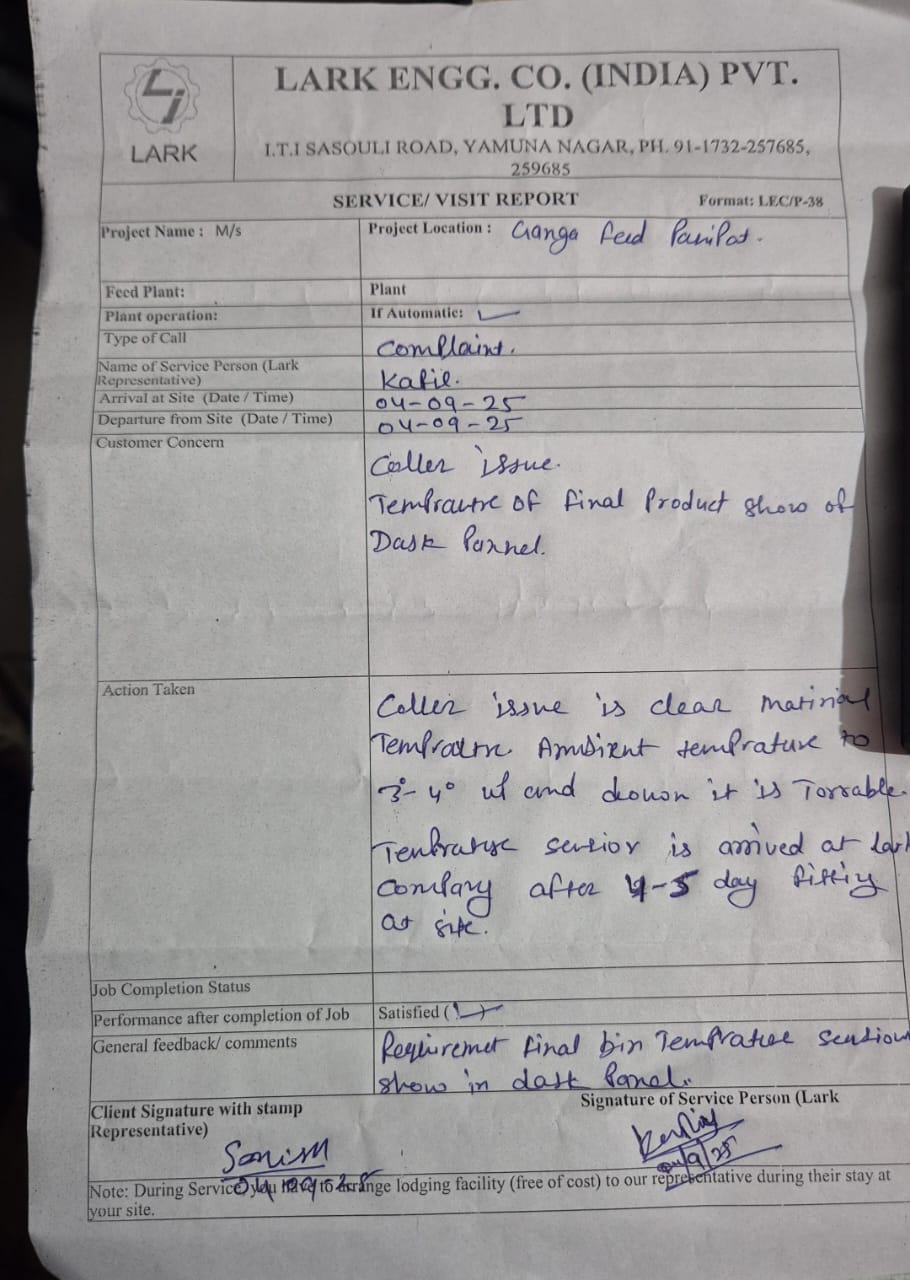 LARK
LARK ENGG. CO. (INDIA) PVT.
LTD
I.T.I SASOULI ROAD, YAMUNA NAGAR, PH. 91-1732-257685,
259685
SERVICE/ VISIT REPORT Format: LEC/P-38
Project Name : M/s Project Location : Ganga feed PaniPat.
Feed Plant: Plant
Plant operation: If Automatic: ✓
Type of Call Complaint.
Name of Service Person (Lark
Representative) Kapil.
Arrival at Site (Date / Time) 04-09-25
Departure from Site (Date / Time) 04-09-25
Customer Concern
Coller issue.
Temprautre of final Product show of
Dask Pannel.
Action Taken
Coller issue is clear Matirial
Tempratre Ambient temprature to
3°- 4° up and down it is Torrable.
is arrived at Lark
Company after 4-5 day fitting
at site.
Job Completion Status
Performance after completion of Job Satisfied (✓)
General feedback/ comments Requiremet final bin Tempratire
show in dask Panel.
Client Signature with stamp Signature of Service Person (Lark
Representative)
04/9/25
Note: During Service you have to arrange lodging facility (free of cost) to our representative during their stay at
your site.